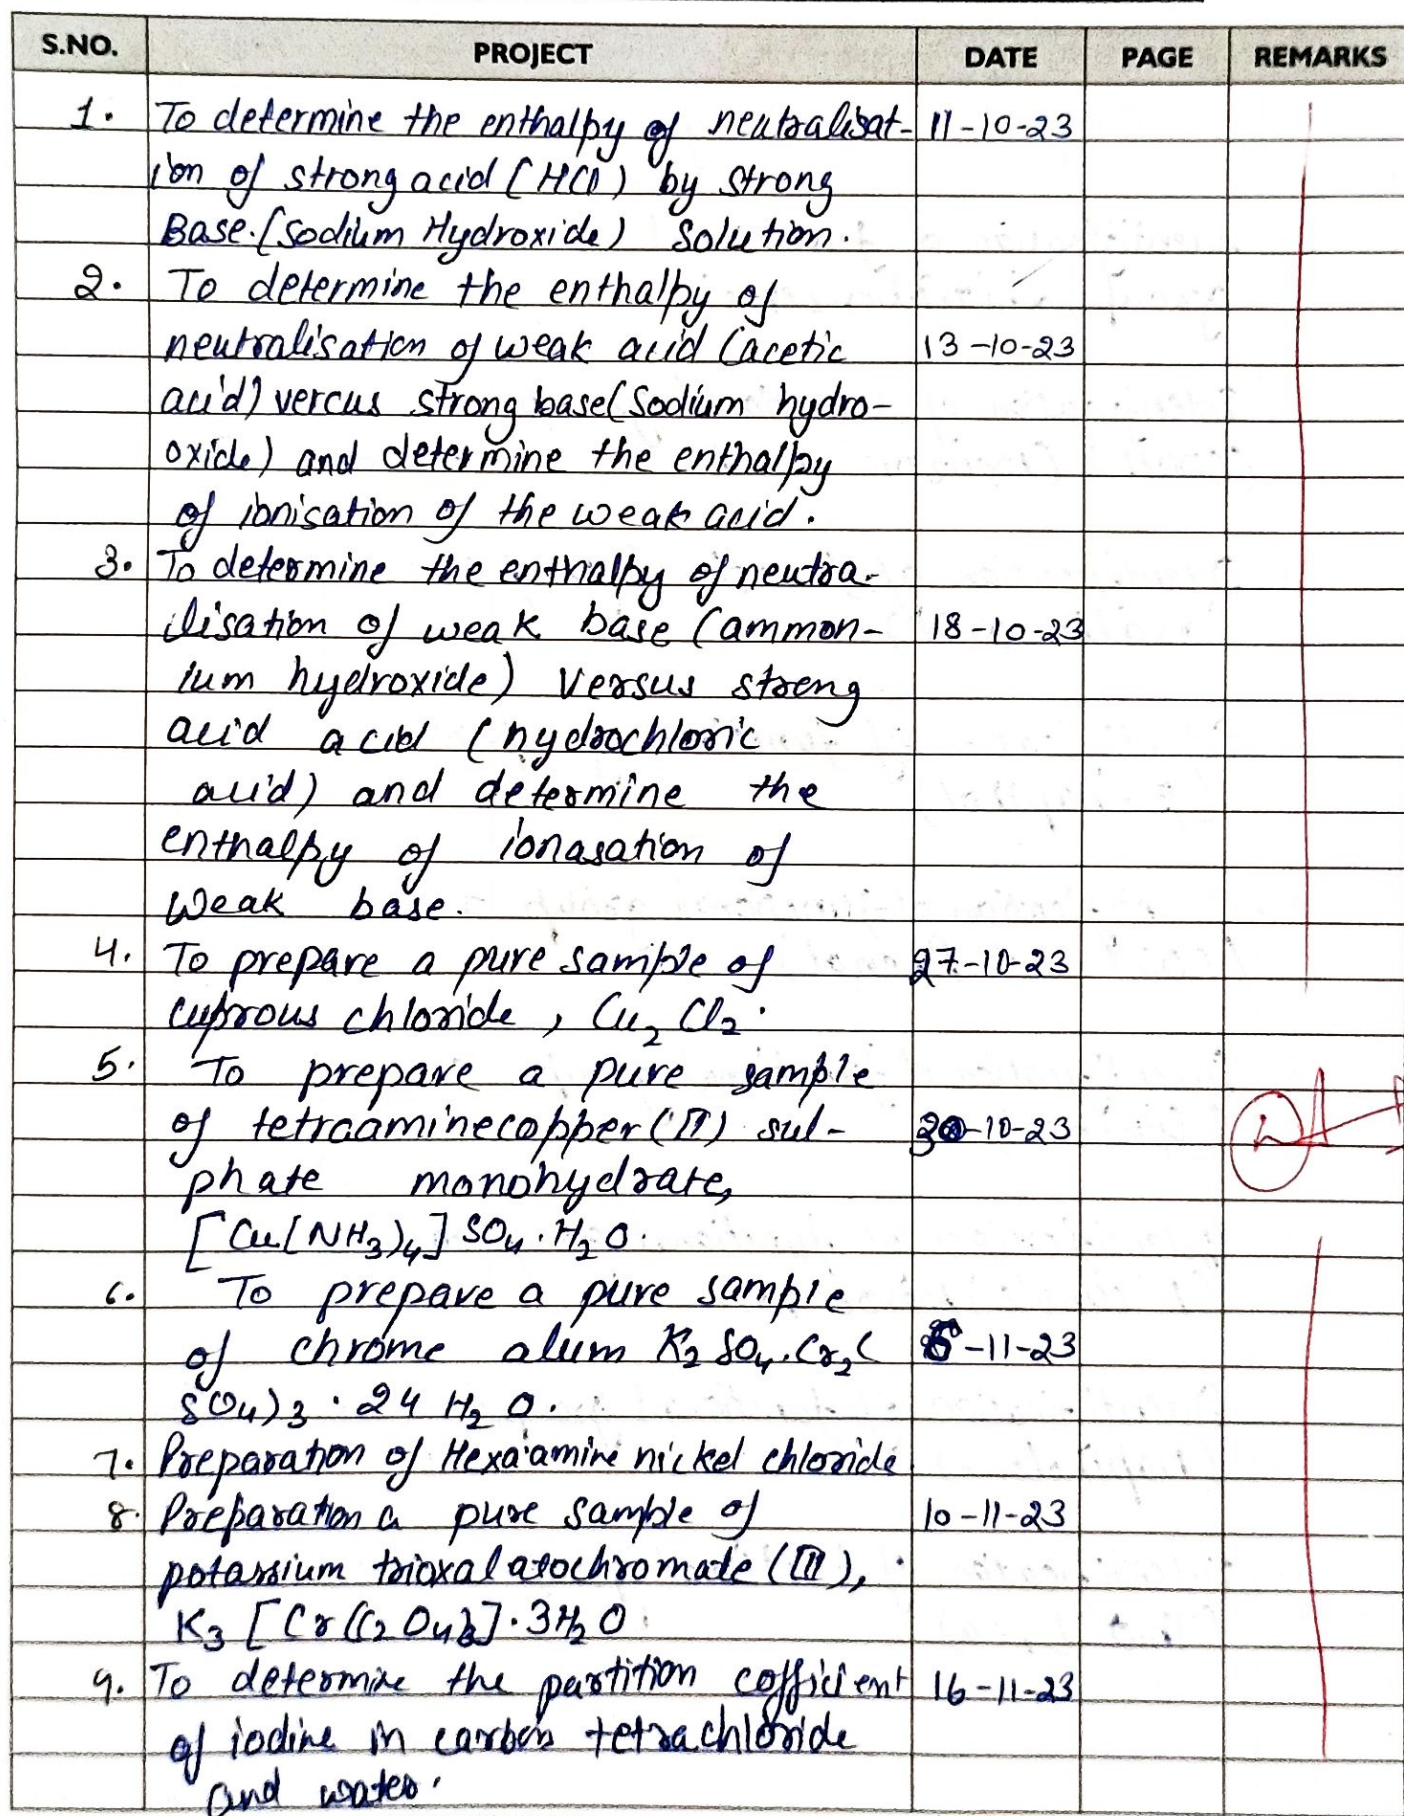 S.NO. PROJECT DATE PAGE REMARKS
1. To determine the enthalpy of neutralisat- 11-10-23
ion of strong acid (HCl) by strong
Base.(Sodium Hydroxide) Solution.
2. To determine the enthalpy of
neutralisation of weak acid (acetic 13-10-23
acid) vercus strong base(Sodium hydro-
oxide) and determine the enthalpy
of ionisation of the weak acid.
3. To determine the enthalpy of neutra-
lisation of weak base (ammon- 18-10-23
ium hydroxide) versus streng
acid acid (hydrochloric
acid) and determine the
enthalpy of ionasation of
Weak base.
4. To prepare a pure sample of 27-10-23
cuprous chloride, Cu2 Cl2.
5. To prepare a pure sample
of tetraaminecopper(II) sul- 30-10-23
phate monohydrate,
[Cu(NH3)4] SO4.H2O.
6. To prepare a pure sample
of chrome alum K2 SO4.Cr2( -11-23
SO4)3 . 24 H2O.
7. Preparation of Hexa'amine nickel chloride
8. Preparation a pure sample of 10-11-23
potassium trioxalatochromate (III),
K3 [Cr(C2O4)3].3H2O
9. To determine the partition cofficient 16-11-23
of iodine in carbon tetrachloride
and water.